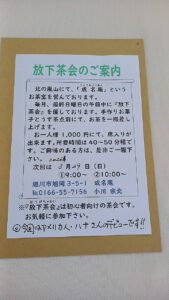 放下茶会のご案内
北の嵐山にて、「成名庵」という
お茶室を営んでおります。
毎月、最終日曜日の午前中に『放下
茶会』を催しております。手作りお菓
子とうす茶点前にて、お茶を一服差し
上げます。
お一人様 1,000円にて、席入りが
出来ます。所要時間は40~50分程で
す。ご興味のある方は、是非ご一報下
さい。
次回は 3月29日(日)
①9:00~ ②10:00~
旭川市旭岡3-5-1 成名庵
℡0166-55-7156 小川
※『放下茶会』は初心者向けの茶会です。
お気軽に参加下さい。